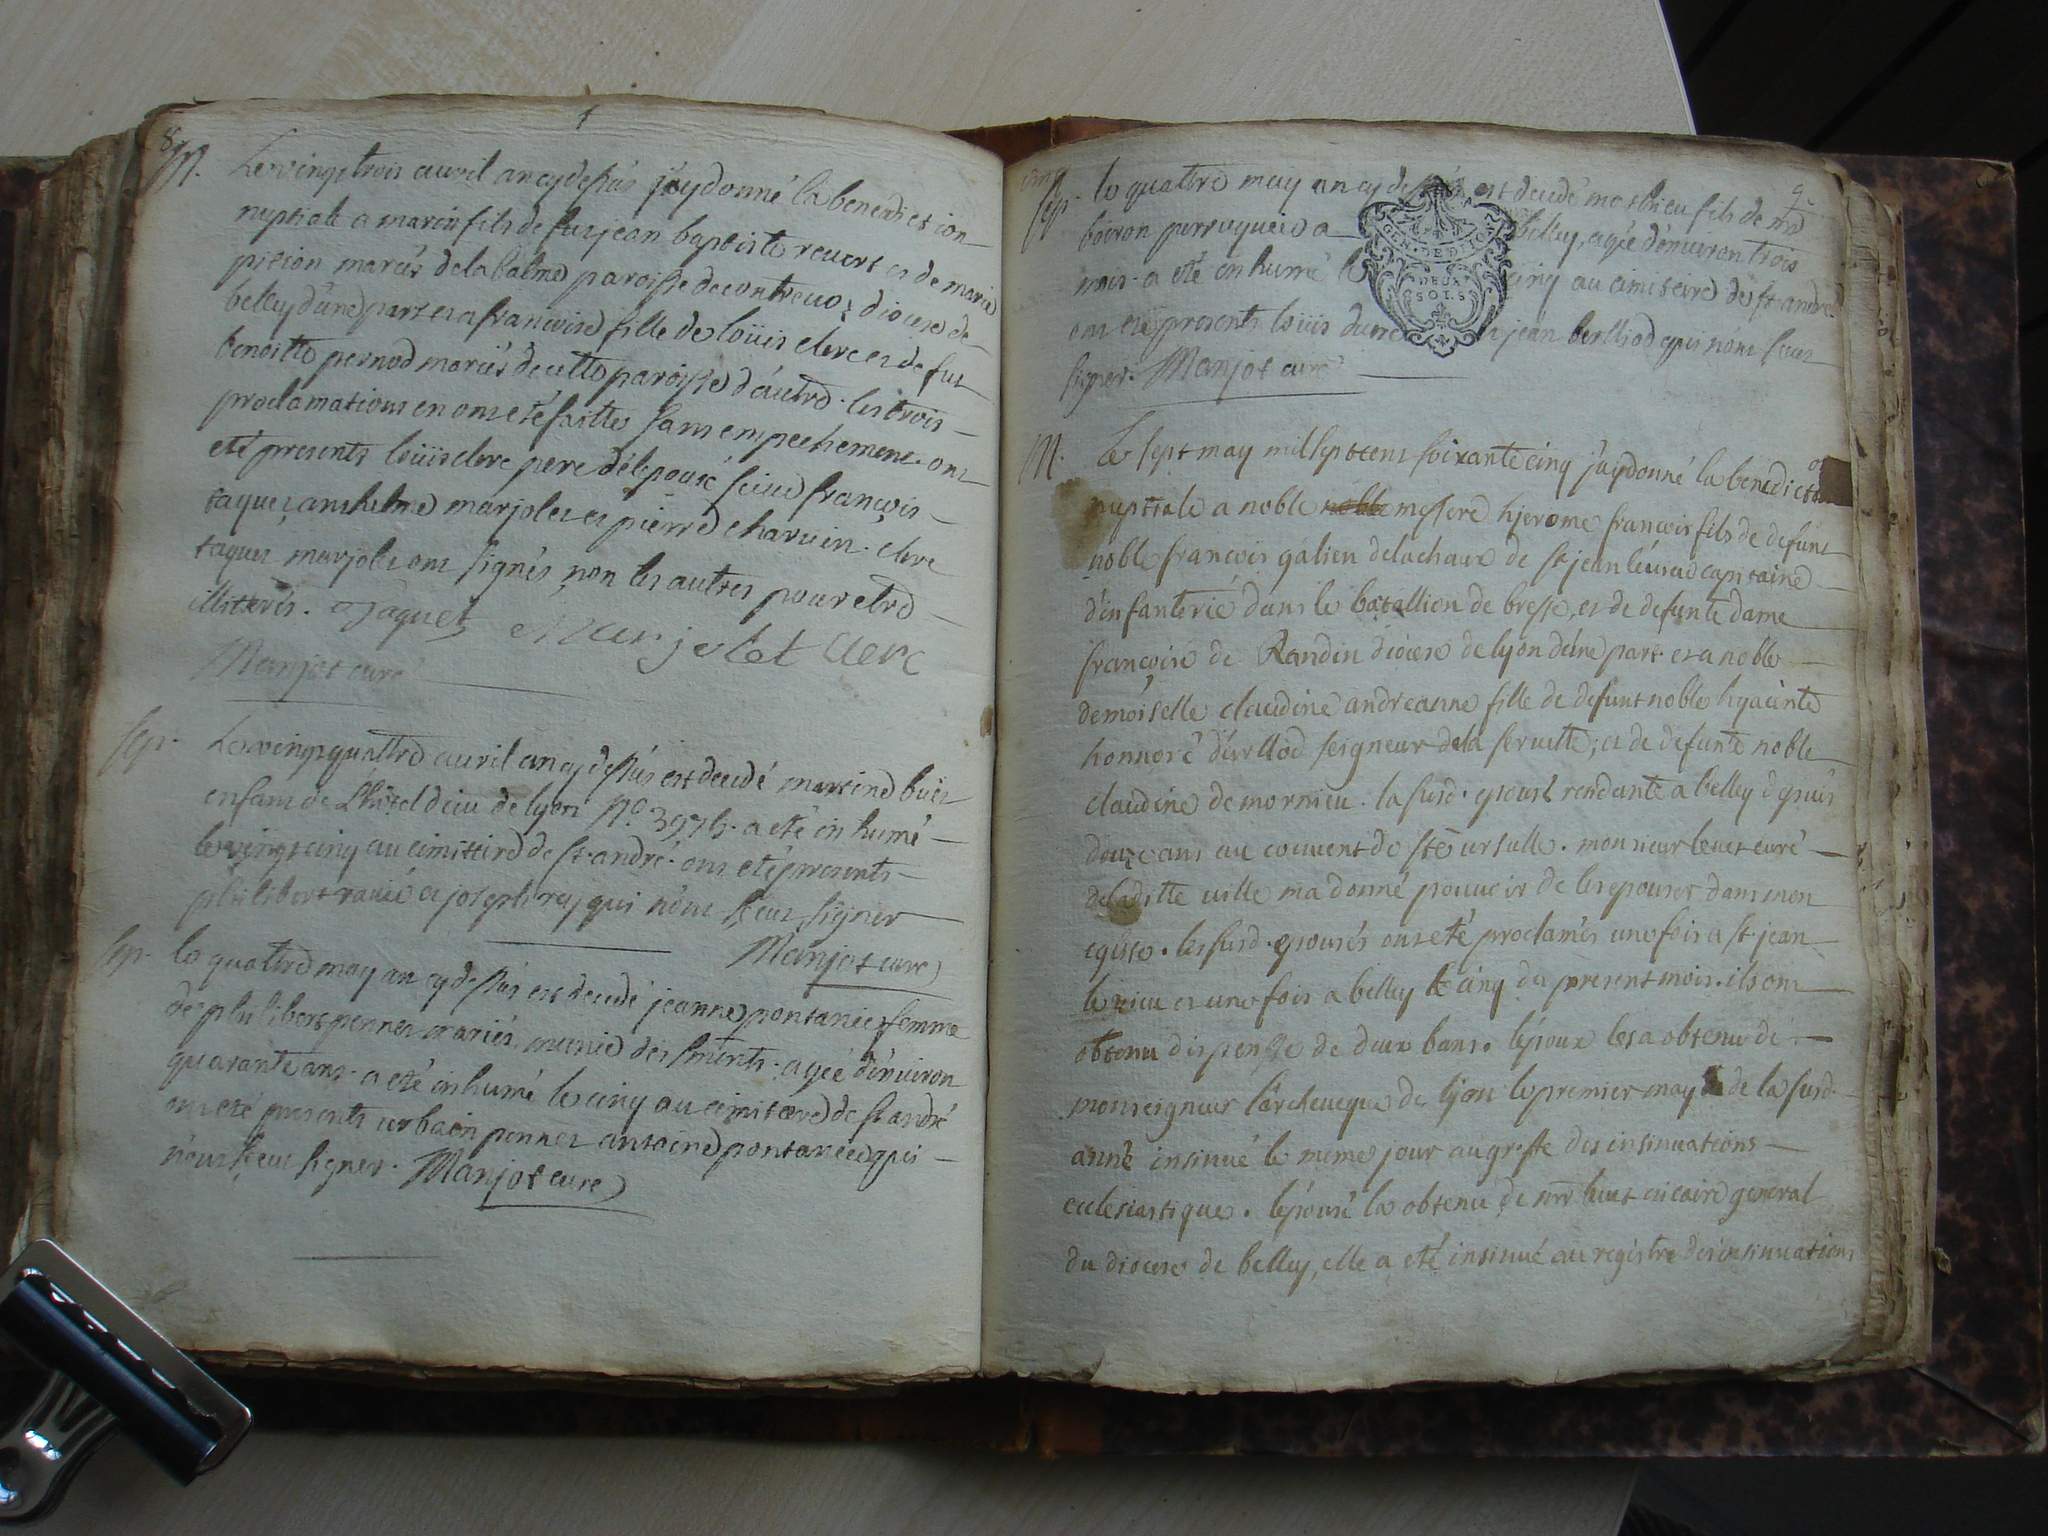 8
M. Le vingt trois avril an cy dessus j'ay donné la benediction
nuptiale a marin fils de feu jean baptiste revert et de marie
pision mariés de la balme paroisse de contrevoz diocese de
belley d'une part et a francoise fille de loüis clerc et de fut
benoitte pernod mariés de cette paroisse d'autre. les trois
proclamations en ont eté faittes sans empechement. ont
eté presents loüis clerc pere de l'epouse sieur françois
jaquet, anthelme marjolet et pierre charvin. clerc
jaquet marjolet ont signés, non les autres pour etre
illiterés. Jaquet Marjolet Clerc
Manjot curé
sep. Le vingt quattre avril an cy dessus est decedé
enfant de l'hôtel dieu de lyon N° a eté inhumé
le vingt cinq au cimettire de st. andré. ont eté presents
philibert et joseph rey qui n'ont sceu signer
Manjot curé
sep. le quattre may an cy dessus est decedé jeanne pontanier femme
de philibert pennet mariés, munie des sments. agée d'environ
quarante ans. a eté inhumé le cinq au cimitiere de st andré
ont eté presents urbain pennet antoine pontanier qui
n'ont sceu signer. Manjot curé
9
sep. le quattre may an cy est decedé mathieu fils de
boiron perruquier a belley, agée d'environ trois
mois. a eté inhumé le cinq au cimiteire de st andré
ont eté presents loüis jean berlliod qui n'ont sceu
signer. Manjot curé
GEN. DEUX SOLS
M. Le sept may mil sept cent soixante cinq j'ay donné la benediction
nuptiale a noble noble messire hjerome francois fils de defunt
noble francois galien delachaux de st jean capitaine
d'infanterie dans le batallion de bresse, et de defunte dame
françoise de Randin diocese de lyon d'une part et a noble
demoiselle claudine andreanne fille de defunt noble hyacinte
honnoré d'urllod seigneur de la servette; et de defunte noble
claudine de mornieu. la susd. epouse residante a belley depuis
douze ans au couvent de ste ursulle. monsieur curé
de laditte ville m'a donné pouvoir de les epouser dans mon
eglise. les susd. epousés ont eté proclamés une fois a st. jean
le vieu et une fois a belley le cinq du present mois. ils ont
obtenu dispense de deux bans. l'epoux les a obtenu de
monseigneur l'archeveque de lyon le premier may de la susd.
anné insinué le meme jour au greffe des insinuations
ecclesiastique. l'epouse la obtenu de vicaire general
du diocese de belley, elle a eté insinué au registre des insinuations